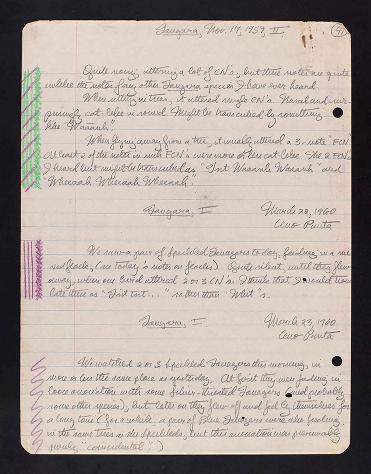 Tangara, Nov. 14, 1959, II
Quite noisy, uttering a lot of CN's, but these notes are quite
unlike the notes of any other Tangara species I have ever heard.
When sitting in trees, it uttered single CN's. Nasal and
cat-like in sound. Might be transcribed by something
like "Waaanh".
When flying away from a tree, it usually uttered a 3-note "FCN".
At least 2 of the notes in such FCN's were more or less cat-like. The 2 FCN's
I heard best might be transcribed as "Tsit Waaanh Waaanh" and
"Wheeaah Wheeaah Wheeaah".
Tangara, I March 22, 1960
Cerro Punta
We saw a pair of Speckled Tanagers today, feeding in a
mixed flock, (see today's notes on flocks). Quite silent, until they flew
away, when one bird uttered 2 or 3 CN's. I think that I would
these as "Tsit tsit..." rather than "Whit"s.
Tangara, I. March 23, 1960
Cerro Punta
We watched 2 or 3 Speckled Tanagers this morning, in
more or less the same place as yesterday. At first they were feeding in
loose association with some Silver-throated Tanagers (and probably
some other species), but later on they flew off and fed by themselves for
a long time (for a while, a pair of Blue Tanagers were also feeding
in the same trees as the Speckleds, but this association was presumably
purely "coincidental".)